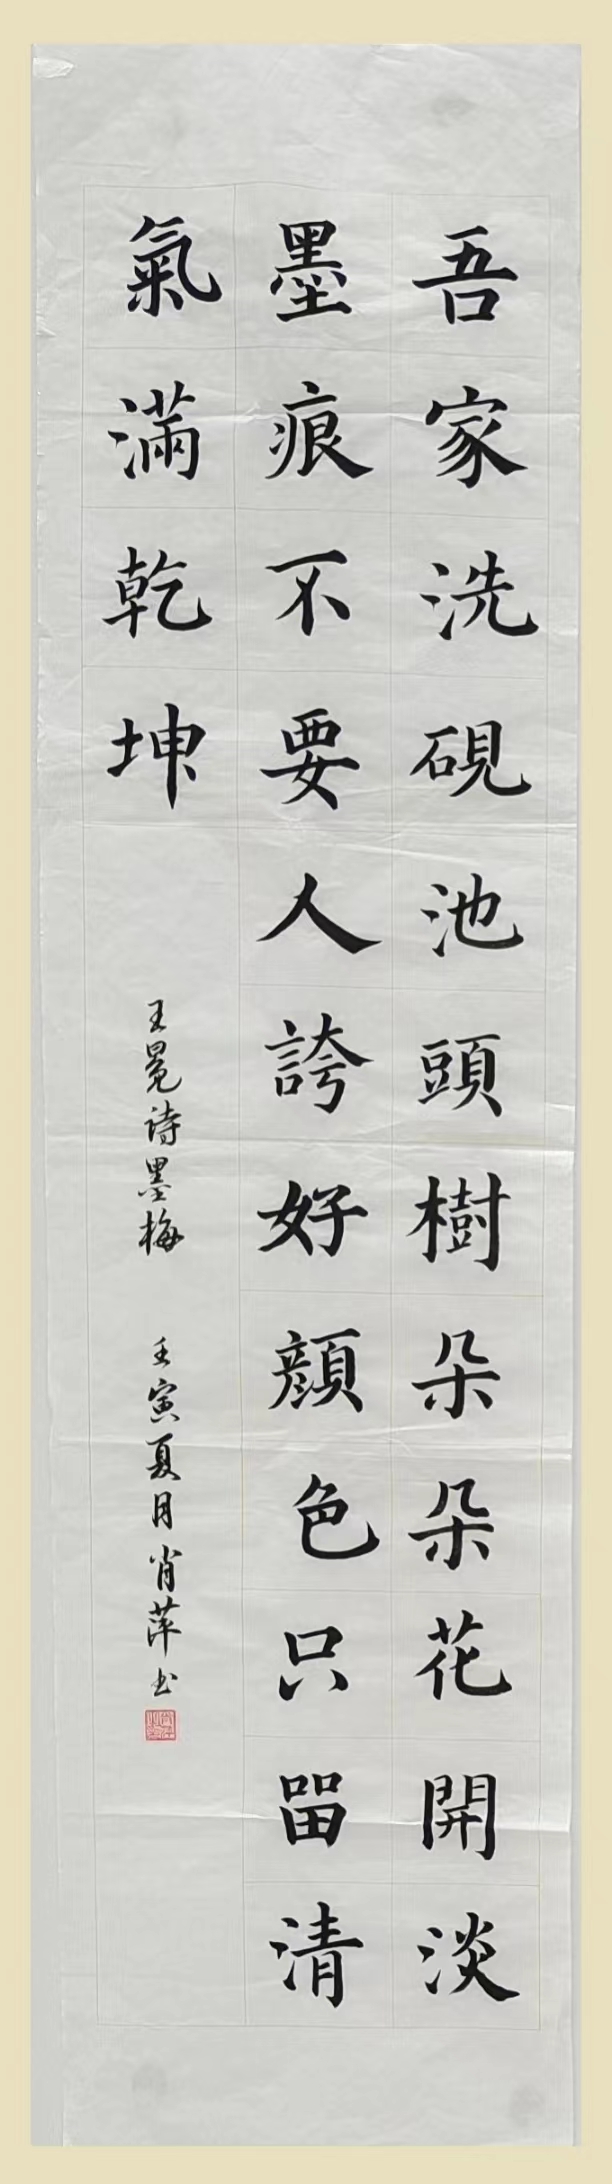 吾家洗硯池頭樹朵朵花開淡
墨痕不要人誇好顔色只留清
氣滿乾坤
王冕诗墨梅 壬寅夏月肖萍书